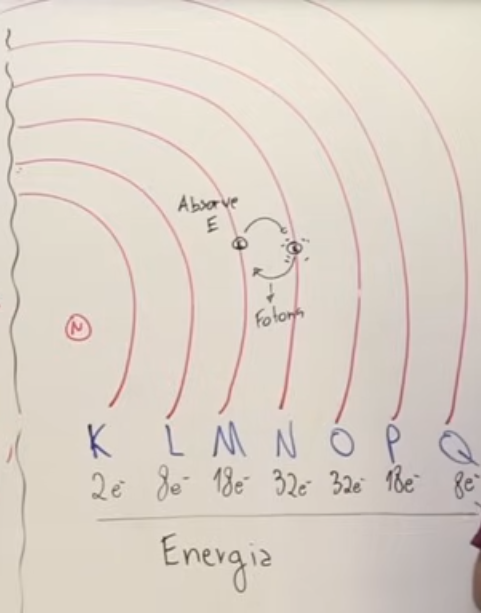 Absorve
E
Fotons
N
K L M N O P Q
2e⁻ 8e⁻ 18e⁻ 32e⁻ 32e⁻ 18e⁻ 8e⁻
Energia